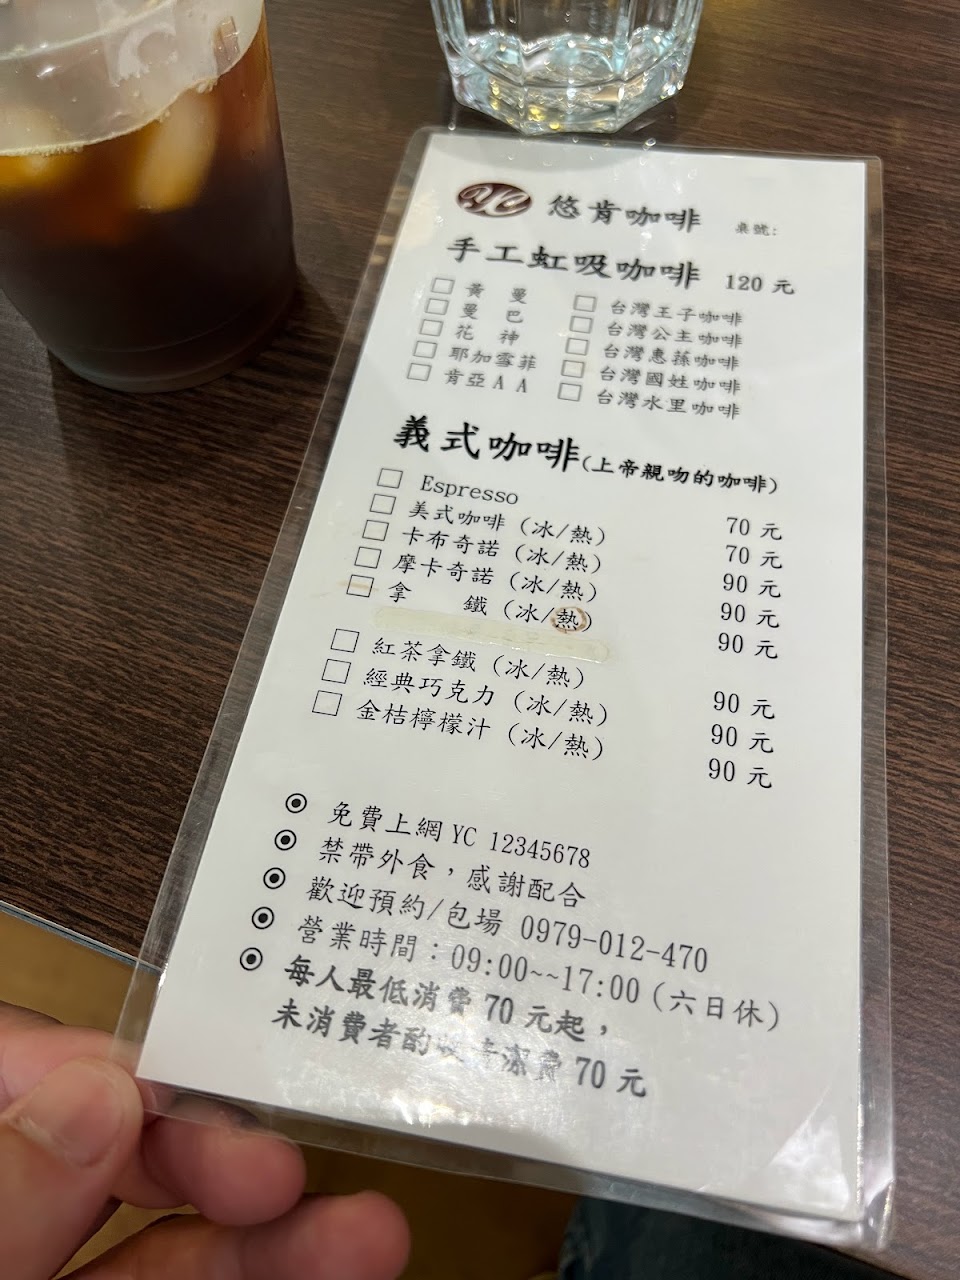 YC 悠肯咖啡 桌號:
手工虹吸咖啡 120 元
□ 黃 曼 □ 台灣王子咖啡
□ 曼 巴 □ 台灣公主咖啡
□ 花 神 □ 台灣惠蓀咖啡
□ 耶加雪菲 □ 台灣國姓咖啡
□ 肯亞AA □ 台灣水里咖啡
義式咖啡(上帝親吻的咖啡)
□ Espresso 70 元
□ 美式咖啡 (冰/熱) 70 元
□ 卡布奇諾 (冰/熱) 90 元
□ 摩卡奇諾 (冰/熱) 90 元
□ 拿 鐵 (冰/熱) 90 元
□ 紅茶拿鐵 (冰/熱) 90 元
□ 經典巧克力 (冰/熱) 90 元
□ 金桔檸檬汁 (冰/熱) 90 元
◉ 免費上網 YC 12345678
◉ 禁帶外食，感謝配合
◉ 歡迎預約/包場 0979-012-470
◉ 營業時間：09:00~~17:00 (六日休)
◉ 每人最低消費 70 元起，
未消費者酌收清潔費 70 元